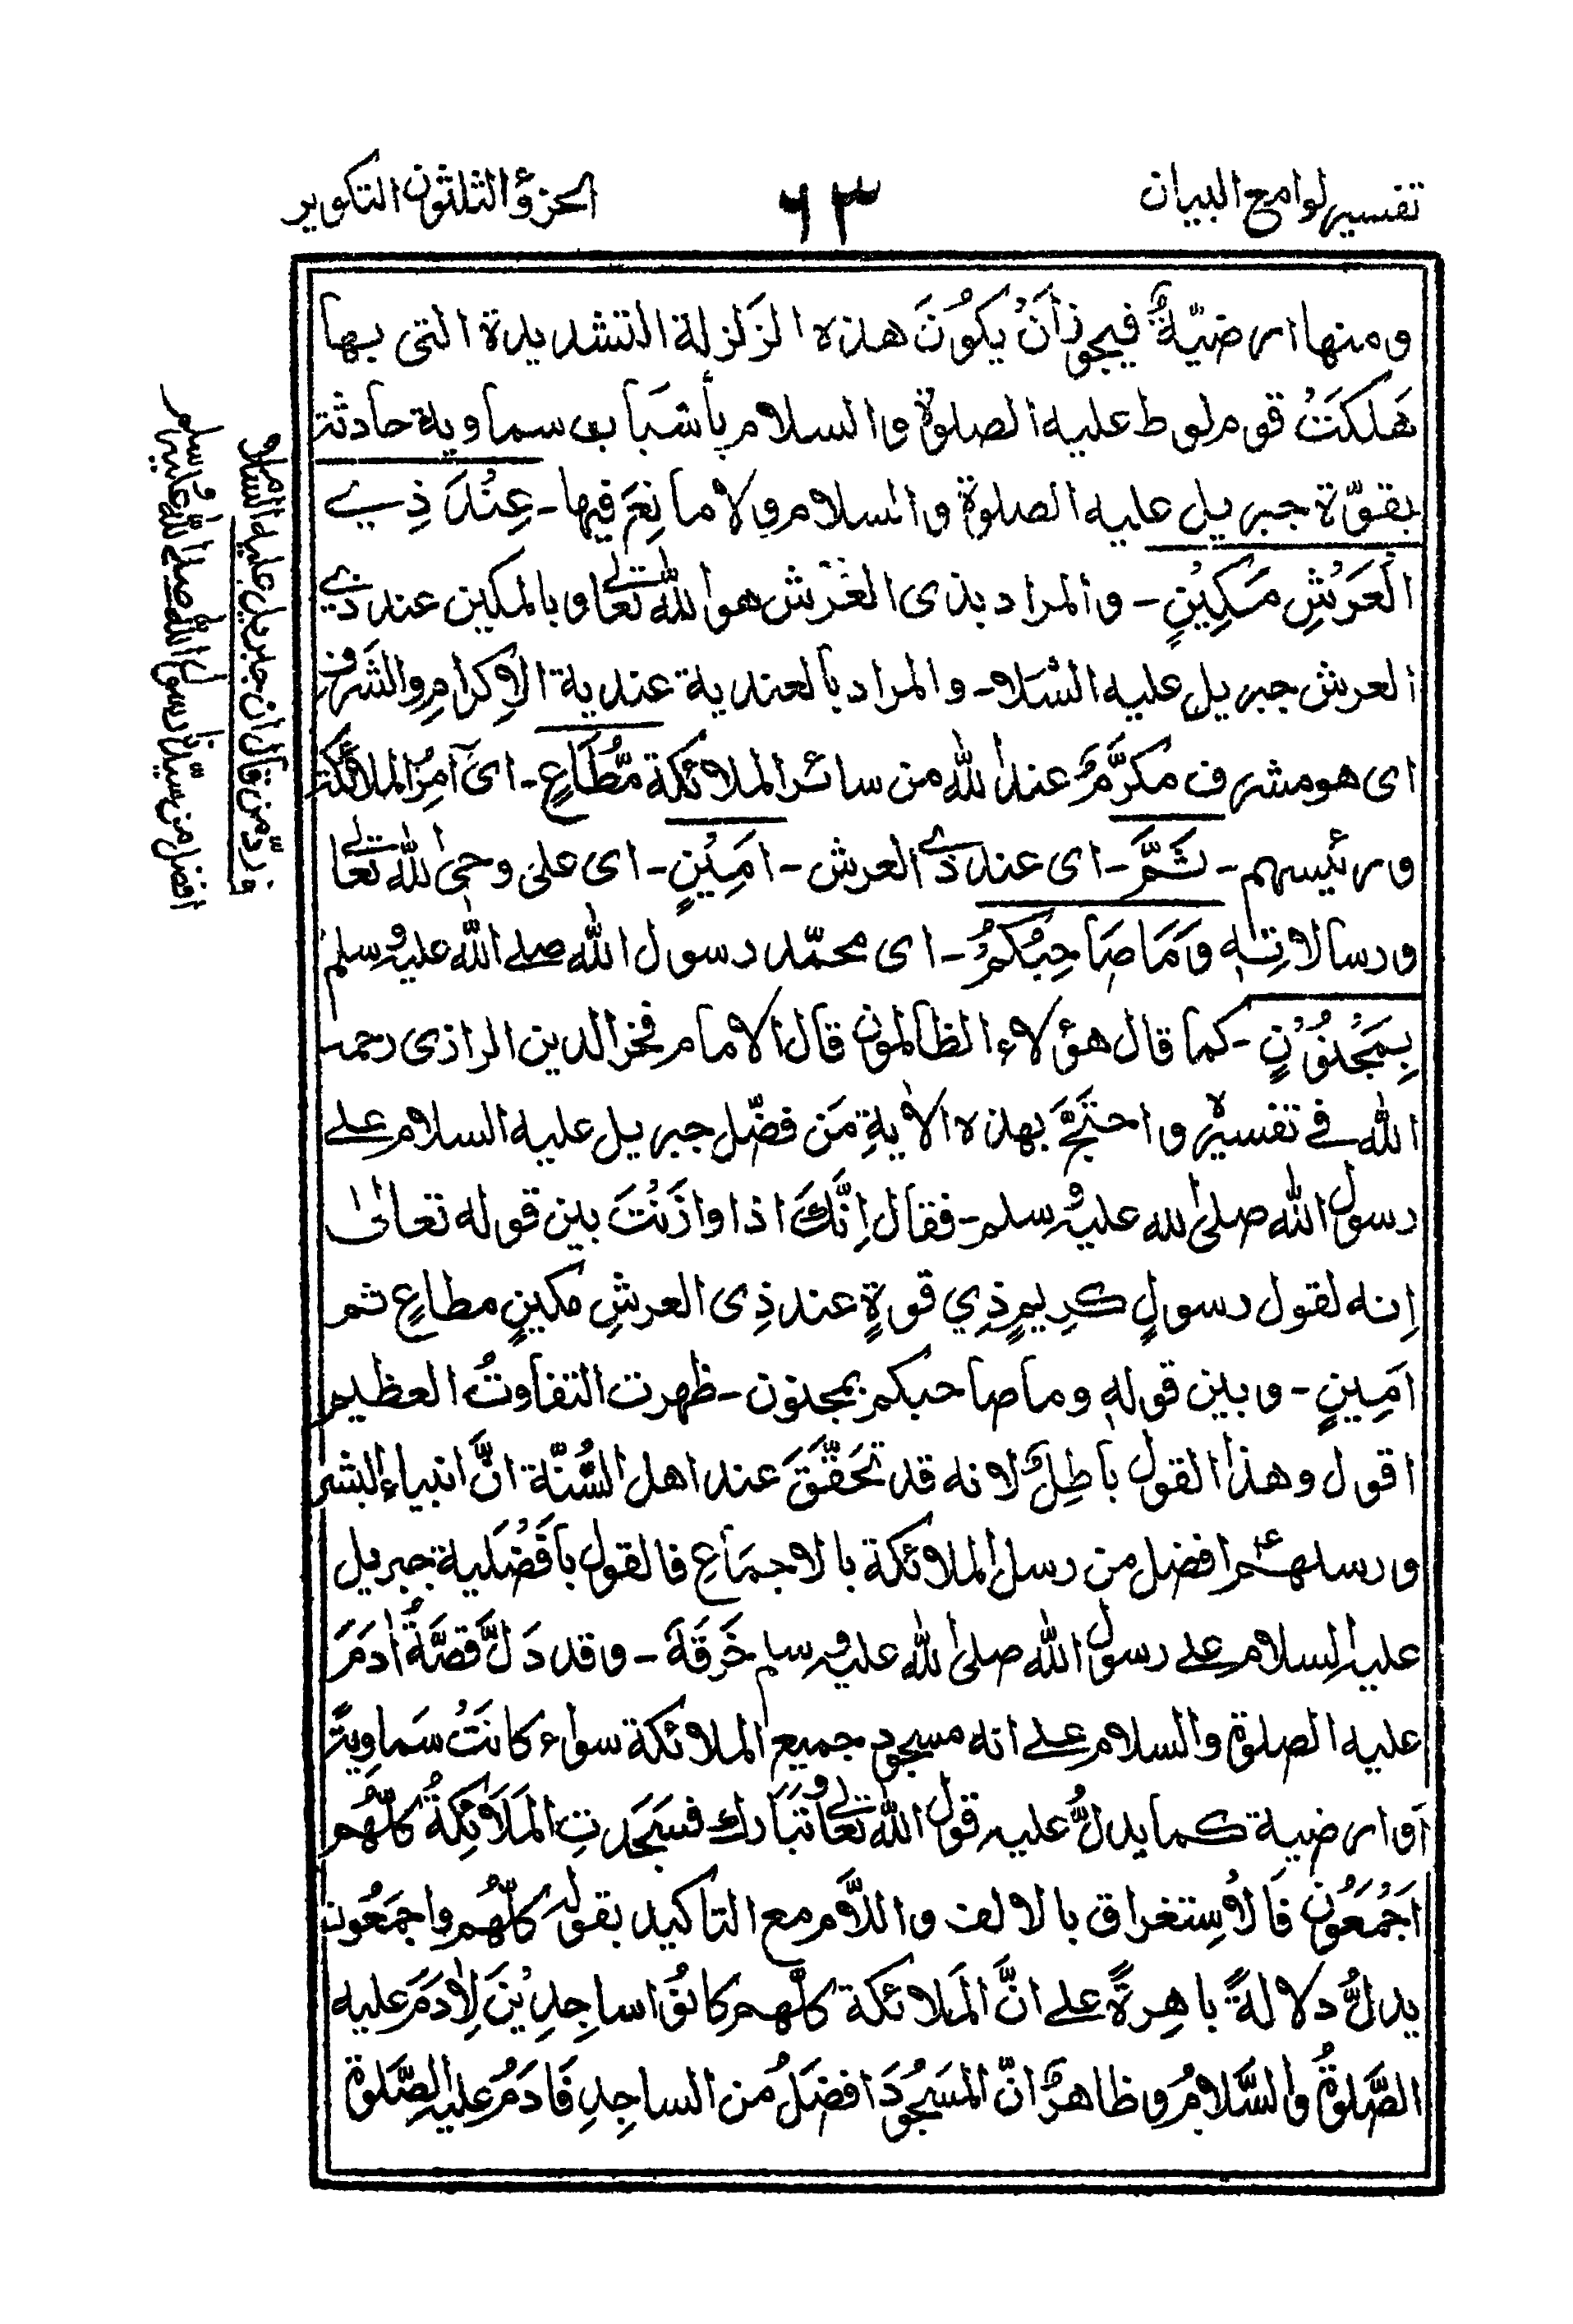 تفسير لوامع البيان
٦٣
الجزؤ الثلثون التكوير
ومنها ارضيّةٌ فيجوز اَنْ يكوُنَ هذه الزَلزلة التشديدة التى بها
هَلكَتْ قوم لوط عليه الصلوة والسلام بأسْبَاب سماوية حادثة
بقوّة جبريل عليه الصلوة والسلام ولا مانِعَ فيها ـ عِنْدَ ذِي
الْعَرْشِ مَكِيْنٍ ـ والمراد بذى العَرْش هو الله تعالى وبالمكين عند ذى
العرش جبريل عليه السّلام ـ والمراد بالعندية عندية الاِكرامِ والشَرف
اى هو مشرف مكرَّمٌ عند الله من سائر الملائكة مُّطَاعٍ ـ اى آمِرُ الملائكة
ورئيسهم ـ ثَمَّ ـ اى عند ذى العرش ـ اَمِيْنٍ ـ اى على وحي الله تعالى
ورسالاتِهٖ وَمَا صَاحِبُكُمْ ـ اى محمّد رسول الله صلى الله عليه وسلم
بِمَجْنُوْنٍ ـ كما قال هؤلاء الظالمون قال الامام فخر الدين الرازى رحمه
الله فى تفسيره واحتَجَّ بهذه الاٰيةِ مَن فضّل جبريل عليه السلام على
رسول الله صلى الله عليه وسلم ـ فقال اِنَّكَ اذا وازَنْتَ بين قوله تعالىٰ
اِنه لقول رسولٍ كريمٍ ذِي قوةٍ عند ذِى العرشِ مكينٍ مطاعٍ ثم
امَينٍ ـ وبين قولهٖ وما صاحبكم بمجنون ـ ظهرت التفاوتُ العظيم
اقول وهذا القول باطِلٌ لانه قد تحَقَّقَ عند اهل السُّنّة انَّ انبياء البشر
ورسلهم افضل من رسل الملائكة بالاجمَاعِ فالقول بافَضْلية جبريل
عليه السلام على رسول الله صلى الله عليه وسلم خَرقَهٗ ـ وقد دَلَّ قصّةُ اٰدَمَ
عليه الصلوة والسلام على انه مسجود جميع الملائكة سواء كانَتْ سَماوِيةً
اَو ارضية كما يدلُّ عليه قول الله تعالى وتَبَارك فسَجَدتِ المَلَائِكَةُ كلّهُم
اَجْمَعُون فَالاْسِتغراق بالالف واللَّام مع التاكيد بقوله كلّهُم واجمَعُون
يدلُّ دلالةً باهِرةً على انَّ المَلائكة كلَّهم كانوُا ساجِدِيْنَ لِاٰدَمَ عليه
الصَّلوةُ والسَّلامُ وظاهرٌ انّ المَسجُودَ افضَلُ من الساجِدِ فَاٰدَمُ عليه الصَّلوة
وَرَدّ من قال ان جبريل عليه السّلام
افضل من سيّدنا رسول الله صلى الله عليه وسلم